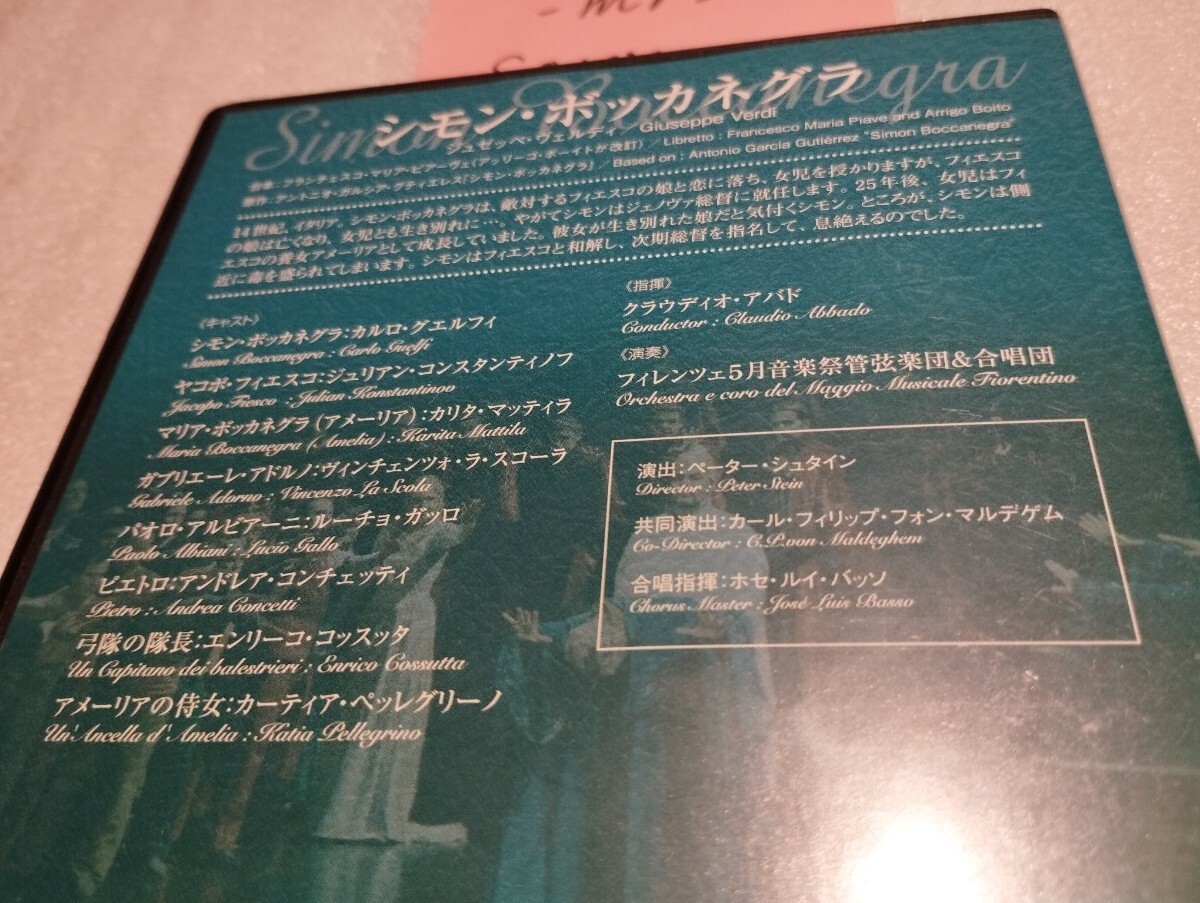 Simon Boccanegra
シモン・ボッカネグラ
ジュゼッペ・ヴェルディ Giuseppe Verdi
台本：フランチェスコ・マリア・ピアーヴェ（アッリーゴ・ボーイトが改訂）／Libretto : Francesco Maria Piave and Arrigo Boito
原作：アントニオ・ガルシア・グティエレス「シモン・ボッカネグラ」／Based on : Antonio García Gutiérrez "Simon Boccanegra"
14世紀、イタリア。シモン・ボッカネグラは、敵対するフィエスコの娘と恋に落ち、女児を授かりますが、フィエスコ
の娘は亡くなり、女児とも生き別れに…。やがてシモンはジェノヴァ総督に就任します。25年後、女児はフィ
エスコの養女アメーリアとして成長していました。彼女が生き別れた娘だと気付くシモン。ところが、シモンは側
近に毒を盛られてしまいます。シモンはフィエスコと和解し、次期総督を指名して、息絶えるのでした。
《キャスト》
シモン・ボッカネグラ：カルロ・グエルフィ
Simon Boccanegra : Carlo Guelfi
ヤコポ・フィエスコ：ジュリアン・コンスタンティノフ
Jacopo Fiesco : Julian Konstantinov
マリア・ボッカネグラ（アメーリア）：カリタ・マッティラ
Maria Boccanegra (Amelia) : Karita Mattila
ガブリエーレ・アドルノ：ヴィンチェンツォ・ラ・スコーラ
Gabriele Adorno : Vincenzo La Scola
パオロ・アルビアーニ：ルーチョ・ガッロ
Paolo Albiani : Lucio Gallo
ピエトロ：アンドレア・コンチェッティ
Pietro : Andrea Concetti
弓隊の隊長：エンリーコ・コッスッタ
Un Capitano dei balestrieri : Enrico Cossutta
アメーリアの侍女：カーティア・ペッレグリーノ
Un'Ancella d'Amelia : Katia Pellegrino
《指揮》
クラウディオ・アバド
Conductor : Claudio Abbado
《演奏》
フィレンツェ5月音楽祭管弦楽団&合唱団
Orchestra e coro del Maggio Musicale Fiorentino
演出：ペーター・シュタイン
Director : Peter Stein
共同演出：カール・フィリップ・フォン・マルデゲム
Co-Director : C.P.von Maldeghem
合唱指揮：ホセ・ルイ・バッソ
Chorus Master : José Luis Basso